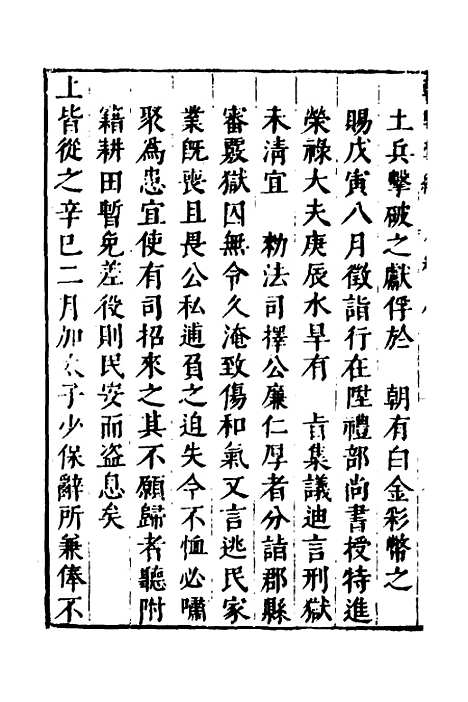 土兵擊破之獻俘於　朝有白金彩幣之
賜戊寅八月徵詣行在陞禮部尚書授特進
榮祿大夫庚辰水旱有　旨集議迪言刑獄
未清宜　勑法司擇公廉仁厚者分詣郡縣
審覈獄囚無令久淹致傷和氣又言逃民家
業旣喪且畏公私逋負之迫失今不恤必嘯
聚為患宜使有司招來之其不願歸者聽附
籍耕田暫免差役則民安而盗息矣
上皆從之辛巳二月加太子少保辭所兼俸不